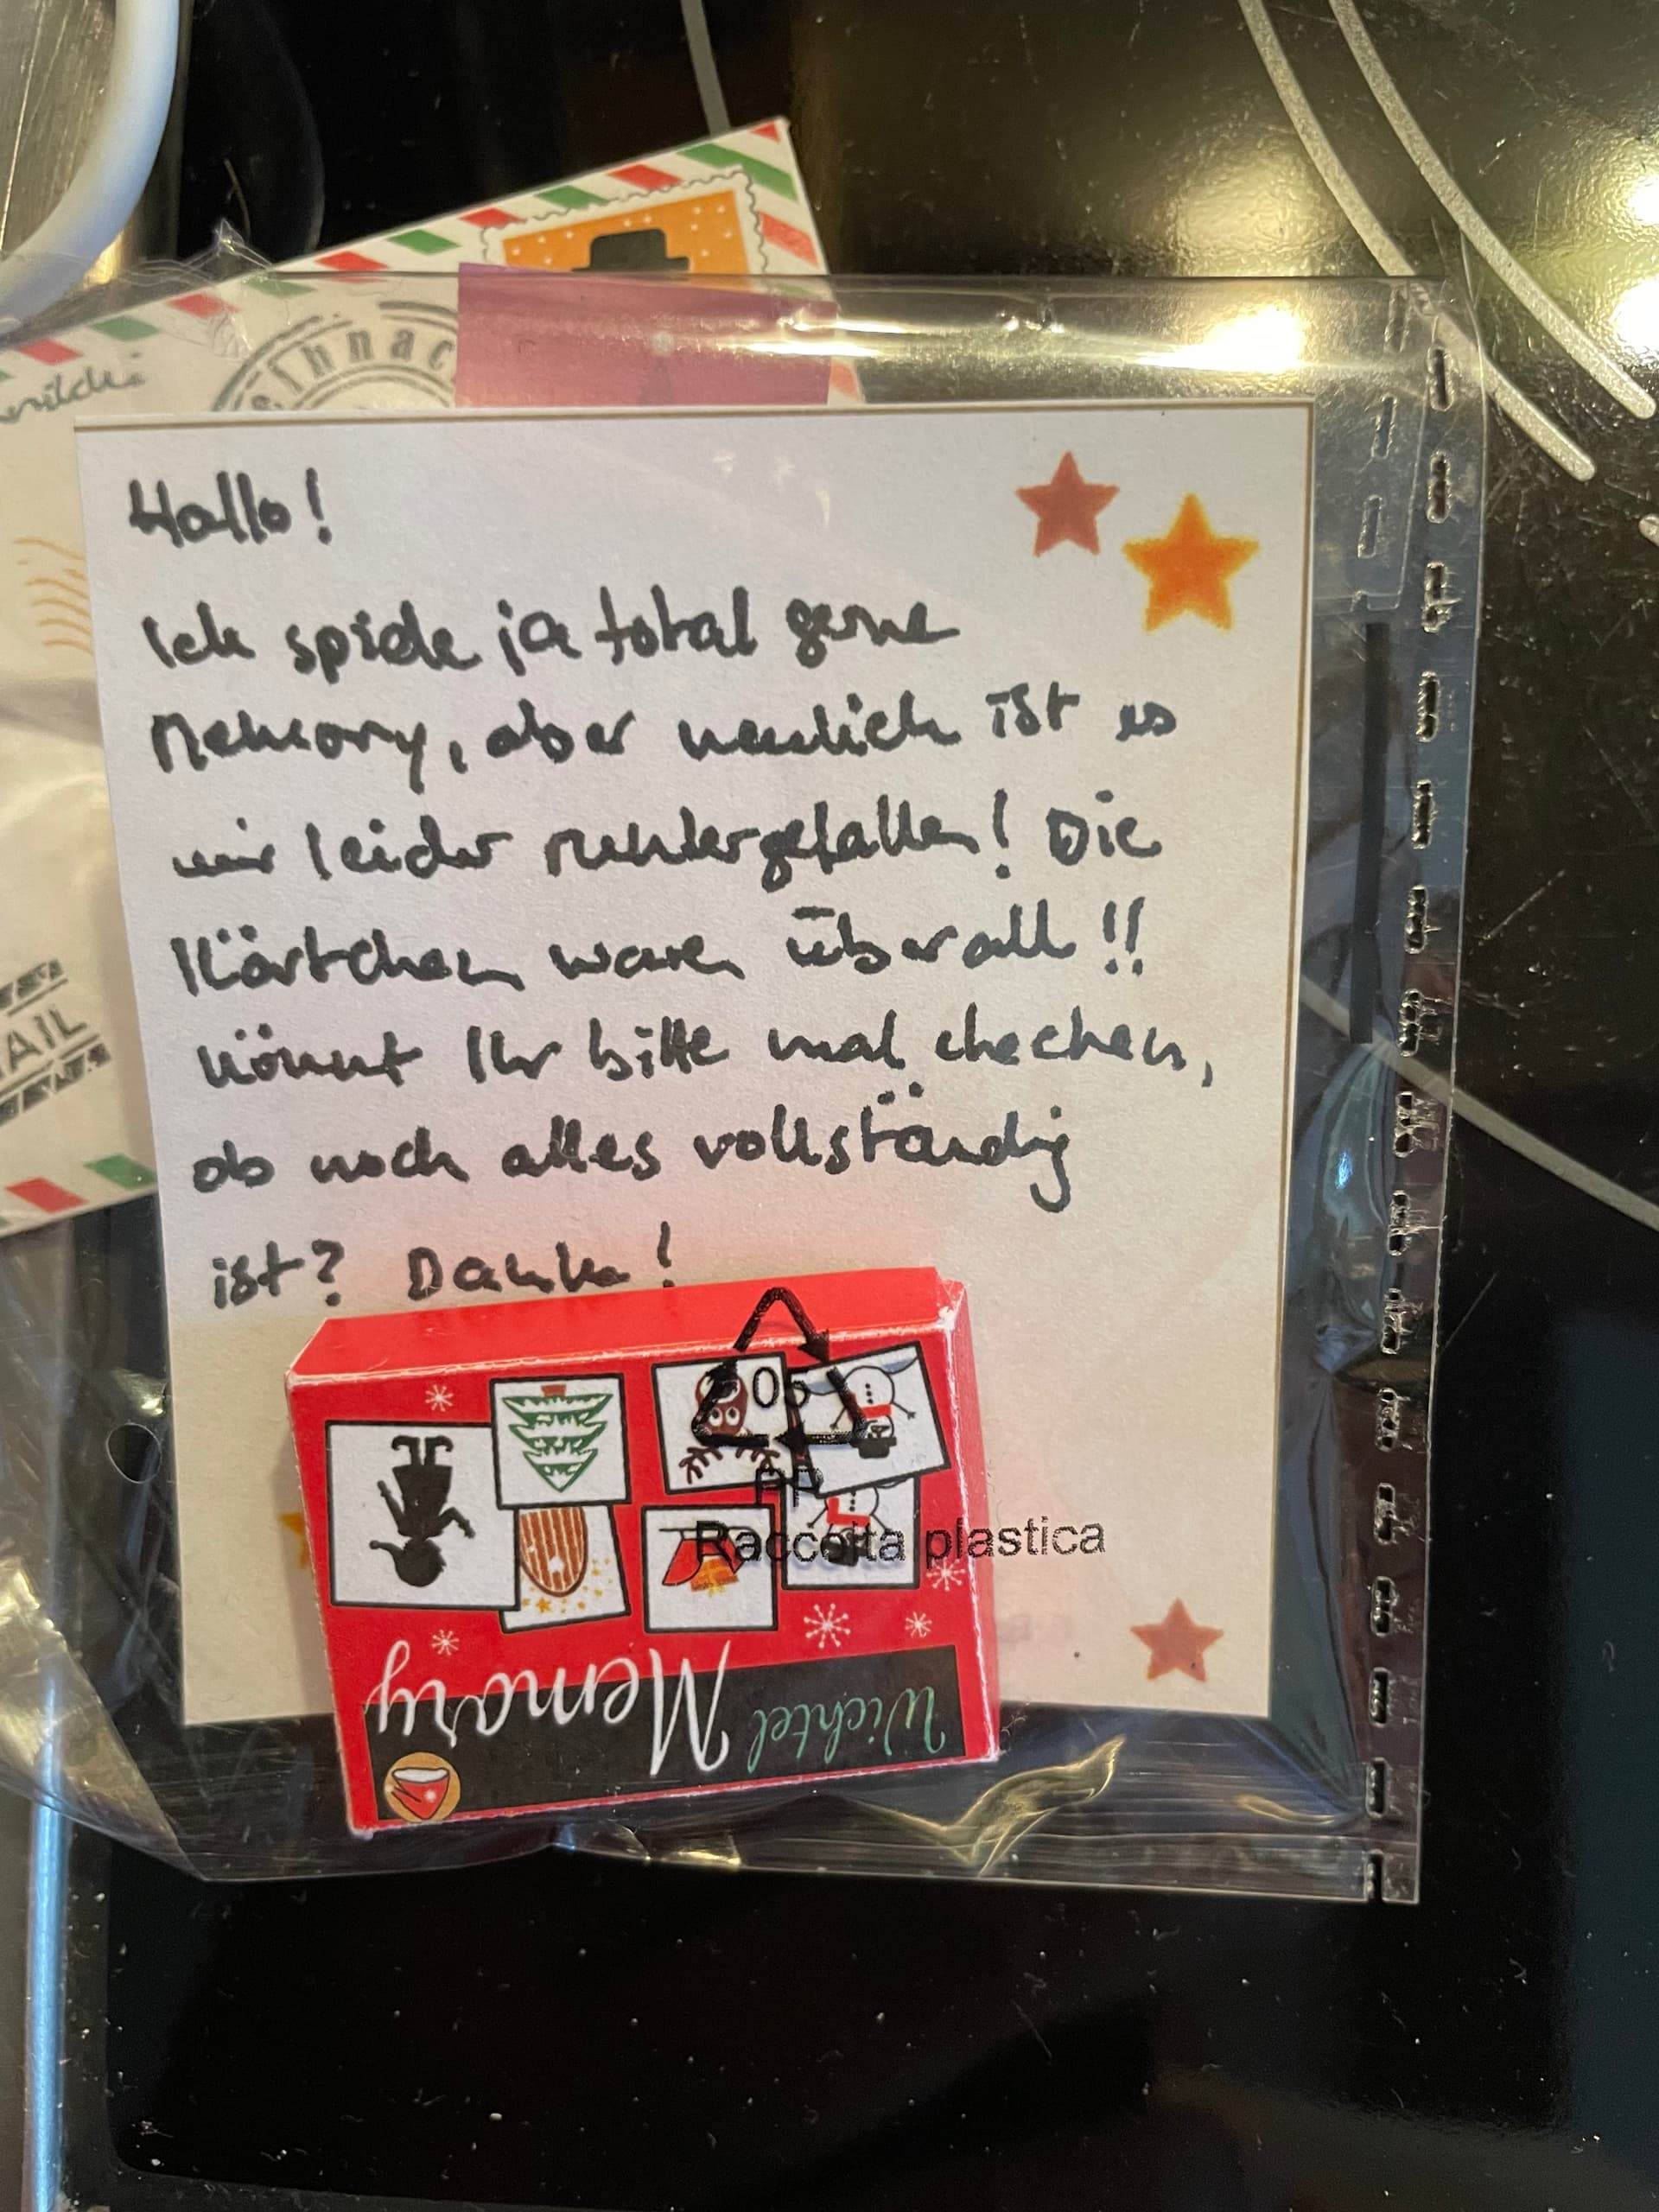 ihnac
AIL
Hallo!
Ich spiele ja total gerne
Memory, aber neulich ist es
mir leider runtergefallen! Die
Kärtchen waren überall!!
Könnt Ihr bitte mal checken,
ob noch alles vollständig
ist? Danke!
05
PP
Raccolta plastica
Wichtel Memory